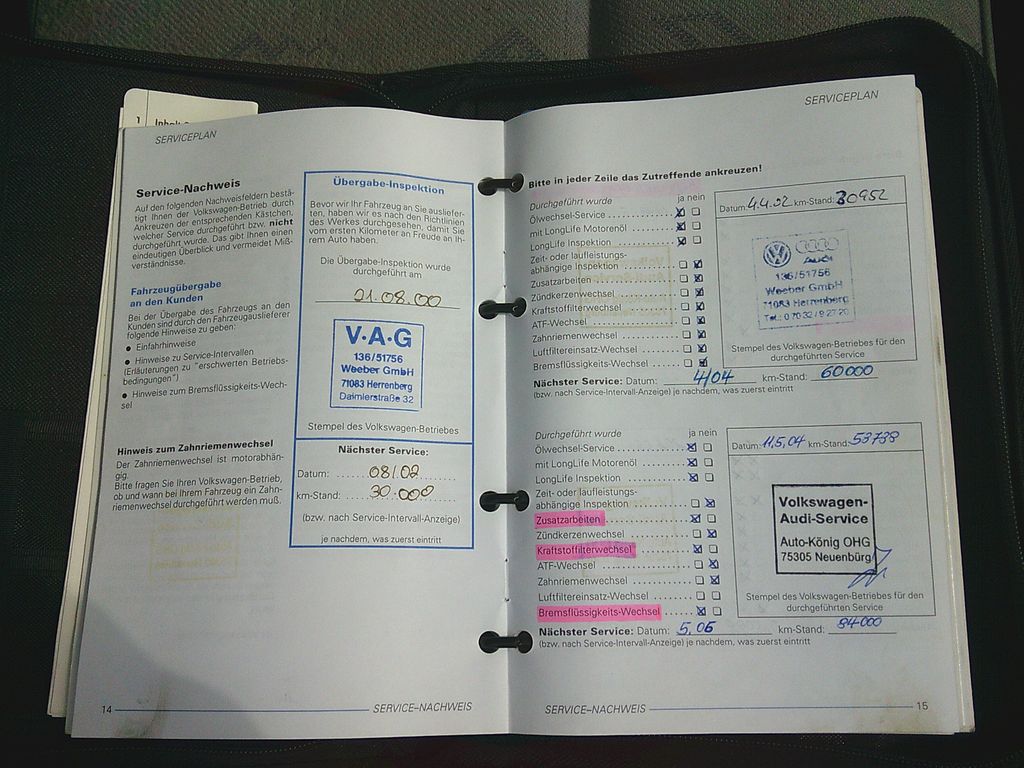 1 Inhalt
SERVICEPLAN
Service-Nachweis
Auf den folgenden Nachweisfeldern bestä-
tigt Ihnen der Volkswagen-Betrieb durch
Ankreuzen der entsprechenden Kästchen,
welcher Service durchgeführt bzw. nicht
durchgeführt wurde. Das gibt Ihnen einen
eindeutigen Überblick und vermeidet Miß-
verständnisse.
Fahrzeugübergabe
an den Kunden
Bei der Übergabe des Fahrzeugs an den
Kunden sind durch den Fahrzeugauslieferer
folgende Hinweise zu geben:
● Einfahrhinweise
● Hinweise zu Service-Intervallen
(Erläuterungen zu "erschwerten Betriebs-
bedingungen")
● Hinweise zum Bremsflüssigkeits-Wech-
sel
Hinweis zum Zahnriemenwechsel
Der Zahnriemenwechsel ist motorabhän-
gig.
Bitte fragen Sie Ihren Volkswagen-Betrieb,
ob und wann bei Ihrem Fahrzeug ein Zahn-
riemenwechsel durchgeführt werden muß.
Übergabe-Inspektion
Bevor wir Ihr Fahrzeug an Sie ausliefer-
ten, haben wir es nach den Richtlinien
des Werkes durchgesehen, damit Sie
vom ersten Kilometer an Freude an Ih-
rem Auto haben.
Die Übergabe-Inspektion wurde
durchgeführt am
21.08.00
V·A·G
136/51756
Weeber GmbH
71083 Herrenberg
Daimlerstraße 32
Stempel des Volkswagen-Betriebes
Nächster Service:
Datum: 08/02
km-Stand: 30.000
(bzw. nach Service-Intervall-Anzeige)
je nachdem, was zuerst eintritt
14 SERVICE-NACHWEIS
SERVICEPLAN
Bitte in jeder Zeile das Zutreffende ankreuzen!
Durchgeführt wurde ja nein
Ölwechsel-Service
mit LongLife Motorenöl
LongLife Inspektion
Zeit- oder laufleistungs-
abhängige Inspektion
Zusatzarbeiten
Zündkerzenwechsel
Kraftstoffilterwechsel
ATF-Wechsel
Zahnriemenwechsel
Luftfiltereinsatz-Wechsel
Bremsflüssigkeits-Wechsel
Datum: 4.4.02 km-Stand: 30952
Audi
136/51756
Weeber GmbH
71083 Herrenberg
Tel.: 0 70 32 / 9 27 20
Stempel des Volkswagen-Betriebes für den
durchgeführten Service
Nächster Service: Datum: 4/04 km-Stand: 60000
(bzw. nach Service-Intervall-Anzeige) je nachdem, was zuerst eintritt
Durchgeführt wurde ja nein
Ölwechsel-Service
mit LongLife Motorenöl
LongLife Inspektion
Zeit- oder laufleistungs-
abhängige Inspektion
Zusatzarbeiten
Zündkerzenwechsel
Kraftstoffilterwechsel
ATF-Wechsel
Zahnriemenwechsel
Luftfiltereinsatz-Wechsel
Bremsflüssigkeits-Wechsel
Datum: 11.5.04 km-Stand: 53738
Volkswagen-
Audi-Service
Auto-König OHG
75305 Neuenbürg
Stempel des Volkswagen-Betriebes für den
durchgeführten Service
Nächster Service: Datum: 5.06 km-Stand: 84000
(bzw. nach Service-Intervall-Anzeige) je nachdem, was zuerst eintritt
SERVICE-NACHWEIS 15